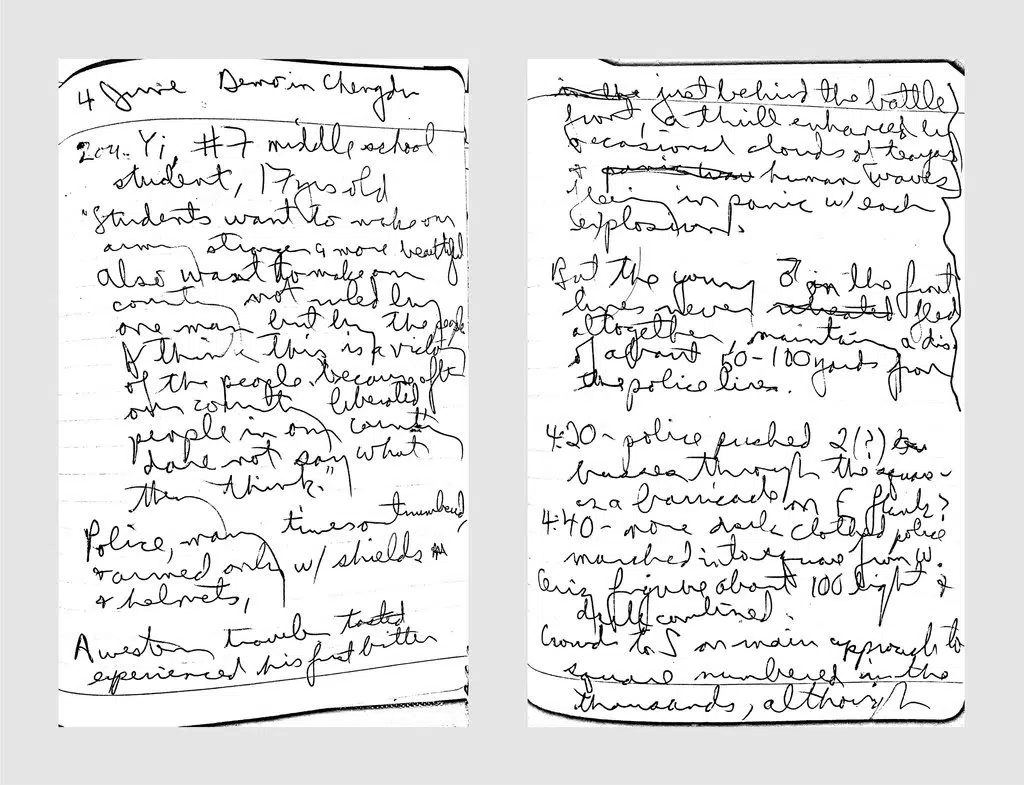 4 June Demo in Chengdu
Yi, #7 middle school
student, 17 yrs old
"Students want to make our
stronger & more beautiful
also want to make our
country not ruled by
one man but by the people
I think this is a victory
of the people because after
our country liberated
people in our country
dare not say what
they think."
Police, many times outnumbered,
& armed only w/ shields
& helmets,
A western traveler tasted
experienced his first bitter
in the just behind the battle
front, a thrill enhanced by
occasional clouds of teargas
& panic human waves
in panic w/ each
explosion.
But the young ♂ in the front
lines never retreated fled
altogether, maintain a dis.
of about 50-100 yards from
the police lines.
4:20 - police pushed 2(?)
busses through the square
as a barricade on E flank?
4:40 - more dark clothed police
marched into square from W.
figure about 100 light &
dark combined.
Crowd to S on main approach to
square numbered in the
thousands, although